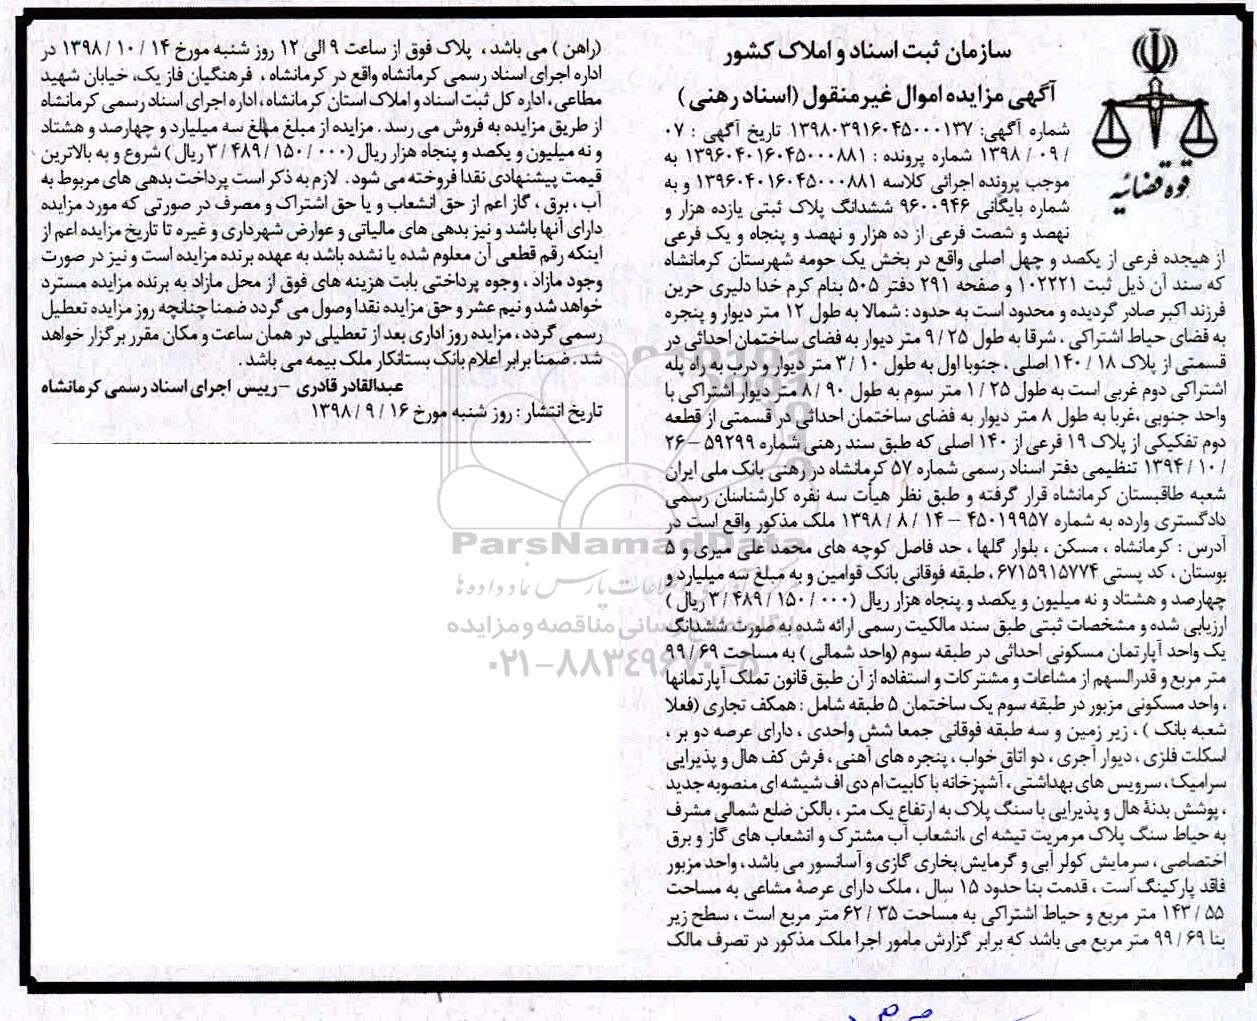 سازمان ثبت اسناد و املاک کشور
آگهی مزایده اموال غیر منقول (اسناد رهنی)
قوه قضائیه
شماره آگهی: ۱۳۹۸۰۳۹۱۶۰۴۵۰۰۰۱۳۷ تاریخ آگهی : ۰۷
/ ۰۹ / ۱۳۹۸ شماره پرونده : ۱۳۹۶۰۴۰۱۶۰۴۵۰۰۰۸۸۱ به
موجب پرونده اجرائی کلاسه ۱۳۹۶۰۴۰۱۶۰۴۵۰۰۰۸۸۱ و به
شماره بایگانی ۹۶۰۰۹۴۶ ششدانگ پلاک ثبتی یازده هزار و
نهصد و شصت فرعی از ده هزار و نهصد و پنجاه و یک فرعی
از هیجده فرعی از یکصد و چهل اصلی واقع در بخش یک حومه شهرستان کرمانشاه
که سند آن ذیل ثبت ۱۰۲۲۲۱ و صفحه ۲۹۱ دفتر ۵۰۵ بنام کرم خدا دلیری حرین
فرزند اکبر صادر گردیده و محدود است به حدود : شمالا به طول ۱۲ متر دیوار و پنجره
به فضای حیاط اشتراکی ، شرقا به طول ۲۵ / ۹ متر دیوار به فضای ساختمان احداثی در
قسمتی از پلاک ۱۸ / ۱۴۰ اصلی ، جنوبا اول به طول ۱۰ / ۳ متر دیوار و درب به راه پله
اشتراکی دوم غربی است به طول ۲۵ / ۱ متر سوم به طول ۹۰ / ۸ متر دیوار اشتراکی با
واحد جنوبی ،غربا به طول ۸ متر دیوار به فضای ساختمان احداثی در قسمتی از قطعه
دوم تفکیکی از پلاک ۱۹ فرعی از ۱۴۰ اصلی که طبق سند رهنی شماره ۵۹۲۹۹ – ۲۶
/ ۱۰ / ۱۳۹۴ تنظیمی دفتر اسناد رسمی شماره ۵۷ کرمانشاه در رهنی بانک ملی ایران
شعبه طاقبستان کرمانشاه قرار گرفته و طبق نظر هیأت سه نفره کارشناسان رسمی
دادگستری وارده به شماره ۴۵۰۱۹۹۵۷ – ۱۴ / ۸ / ۱۳۹۸ ملک مذکور واقع است در
آدرس : کرمانشاه ، مسکن ، بلوار گلها ، حد فاصل کوچه های محمد علی میری و ۵
بوستان ، کد پستی ۶۷۱۵۹۱۵۷۷۴ ، طبقه فوقانی بانک قوامین و به مبلغ سه میلیارد و
چهارصد و هشتاد و نه میلیون و یکصد و پنجاه هزار ریال (۰۰۰ / ۱۵۰ / ۴۸۹ / ۳ ریال )
ارزیابی شده و مشخصات ثبتی طبق سند مالکیت رسمی ارائه شده به صورت ششدانگ
یک واحد آپارتمان مسکونی احداثی در طبقه سوم (واحد شمالی ) به مساحت ۶۹ / ۹۹
متر مربع و قدرالسهم از مشاعات و مشترکات و استفاده از آن طبق قانون تملک آپارتمانها
، واحد مسکونی مزبور در طبقه سوم یک ساختمان ۵ طبقه شامل : همکف تجاری (فعلا
شعبه بانک ) ، زیر زمین و سه طبقه فوقانی جمعا شش واحدی ، دارای عرصه دو بر ،
اسکلت فلزی ، دیوار آجری ، دو اتاق خواب ، پنجره های آهنی ، فرش کف هال و پذیرایی
سرامیک ، سرویس های بهداشتی ، آشپزخانه با کابینت ام دی اف شیشه ای منصوبه جدید
، پوشش بدنهٔ هال و پذیرایی با سنگ پلاک به ارتفاع یک متر ، بالکن ضلع شمالی مشرف
به حیاط سنگ پلاک مرمریت تیشه ای ،انشعاب آب مشترک و انشعاب های گاز و برق
اختصاصی ، سرمایش کولر آبی و گرمایش بخاری گازی و آسانسور می باشد ، واحد مزبور
فاقد پارکینگ است ، قدمت بنا حدود ۱۵ سال ، ملک دارای عرصهٔ مشاعی به مساحت
۵۵ / ۱۴۳ متر مربع و حیاط اشتراکی به مساحت ۳۵ / ۶۲ متر مربع است ، سطح زیر
بنا ۶۹ / ۹۹ متر مربع می باشد که برابر گزارش مامور اجرا ملک مذکور در تصرف مالک
(راهن ) می باشد ، پلاک فوق از ساعت ۹ الی ۱۲ روز شنبه مورخ ۱۴ / ۱۰ / ۱۳۹۸ در
اداره اجرای اسناد رسمی کرمانشاه واقع در کرمانشاه ، فرهنگیان فاز یک، خیابان شهید
مطاعی ، اداره کل ثبت اسناد و املاک استان کرمانشاه ، اداره اجرای اسناد رسمی کرمانشاه
از طریق مزایده به فروش می رسد . مزایده از مبلغ مبلغ سه میلیارد و چهارصد و هشتاد
و نه میلیون و یکصد و پنجاه هزار ریال (۰۰۰ / ۱۵۰ / ۴۸۹ / ۳ ریال ) شروع و به بالاترین
قیمت پیشنهادی نقدا فروخته می شود . لازم به ذکر است پرداخت بدهی های مربوط به
آب ، برق ، گاز اعم از حق انشعاب و یا حق اشتراک و مصرف در صورتی که مورد مزایده
دارای آنها باشد و نیز بدهی های مالیاتی و عوارض شهرداری و غیره تا تاریخ مزایده اعم از
اینکه رقم قطعی آن معلوم شده یا نشده باشد به عهده برنده مزایده است و نیز در صورت
وجود مازاد ، وجوه پرداختی بابت هزینه های فوق از محل مازاد به برنده مزایده مسترد
خواهد شد و نیم عشر و حق مزایده نقدا وصول می گردد ضمنا چنانچه روز مزایده تعطیل
رسمی گردد، مزایده روز اداری بعد از تعطیلی در همان ساعت و مکان مقرر برگزار خواهد
شد . ضمنا برابر اعلام بانک بستانکار ملک بیمه می باشد.
عبدالقادر قادری – رییس اجرای اسناد رسمی کرمانشاه
تاریخ انتشار : روز شنبه مورخ ۱۶ / ۹ / ۱۳۹۸
ParsNamadData
پایگاه اطلاع رسانی مناقصه و مزایده
۰۲۱-۸۸۳۴۹۶۷۰-۵